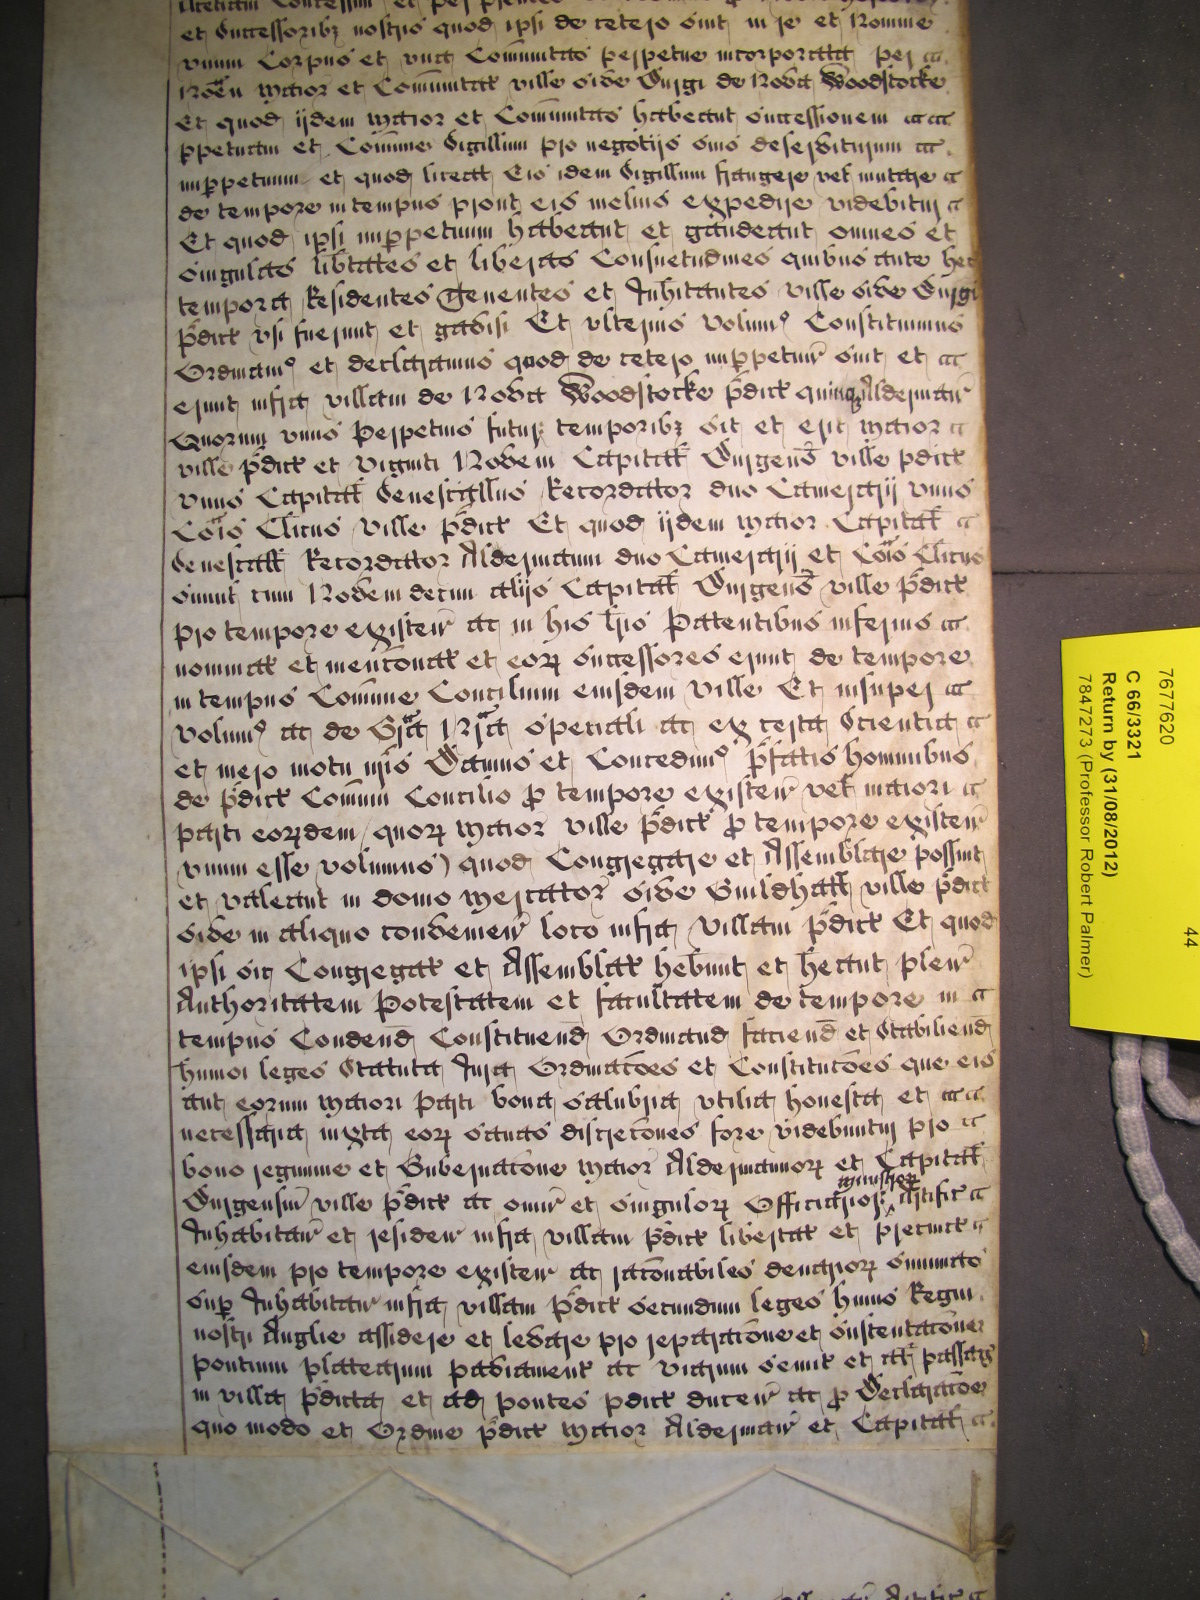 et Successoribz nostris quod ipsi de cetero sint in re et Nomine
unum Corpus et una Comunitas perpetue incorporata per
Noen Maior et Comunitat ville sive Burgi de Nova Woodstocke
Et quod ijdem Maior et Comunitas habeant successionem ac
ppetuam et Comune Sigillum pro negotijs suis deserviturum ac
impppetuum et quod liceat Eis idem Sigillum frangere vel mutare
de tempore in tempus prout eis melius expedire videbitur
Et quod ipsi impppetuum habeant et gaudeant omnes et
singulas libtates et liberas Consuetudines quibus ante hec
tempora Residentes Tenentes et Inhitantes ville sive Burgi
pdict usi fuerunt et gavisi Et ulterius volum Constituimus
Ordinam et declaramus quod de cetero imppetuu sint et
erunt infra villam de Nova Woodstocke pdict quinqz Aldermani
Quorum unus perpetuis futur temporibz sit et erit Maior
ville pdict et viginti Novem Capital Burgens ville pdict
unus Capital Senescallus Recordator duo Camerarij unus
Cois Clicus ville pdict Et quod ijdem Maior Capital
Senescall Recordator Aldermani duo Camerarij et Cois Clicus
simul cum Novemdecim alijs Capital Burgens ville pdict
pro tempore existen ac in his lris Patentibus inferius
nominat et menconat et eor Successores erunt de tempore
in tempus Comune Concilium eiusdem ville Et insuper
volum ac de Gra Nra speciali ac ex certa Scientia
et mero motu nris Damus et Concedim pfatis hominibus
de pdict Comun Concilio p tempore existen vel maiori
parti eordem (quor Maior ville pdict p tempore existen
unum esse volumus) quod Congregare et Assemblare possint
et valeant in domo Mercator sive Guildhall ville pdict
sive in aliquo convenien loco infra villam pdict Et quod
ipsi sic Congregat et Assemblat hebunt et heant plen
Authoritatem Potestatem et facultatem de tempore in
tempus Condend Constituend Ordinand faciend et Stabiliend
humoi leges Statuta Jura Ordinacoes et Constitucoes que eis
aut eorum Maiori parti bona salubria utilia honesta et
necessaria iuxta eor sanas discrecones fore videbuntur pro
bono regimine et Gubernacone Maior Aldermannor et Capital
Burgensiu ville pdict ac omn et singulor Officiarior ministror Artific
Inhabitan et residen infra villam pdict libertat et precinct
eiusdem pro tempore existen ac raconabiles denarior summas
sup Inhabitan infra villam pdict secundum leges huius Regni
nostri Anglie assidere et levare pro reparacone et sustentacone
pontium platearum paviament ac viarum semit et al passag
in villa pdicta et ad pontes pdict ducen ac p Declaracoe
quo modo et Ordine pdict Maior Aldermani et Capital
7677620
44
C 66/3321
Return by (31/08/2012)
7847273 (Professor Robert Palmer)